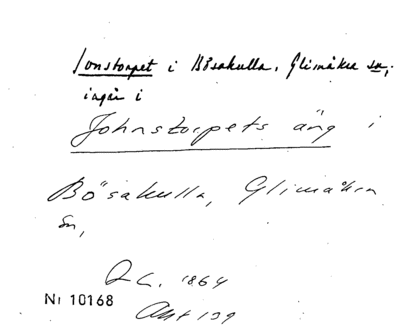 Jonstorpet i Bösakulla, Glimåkra sn,
ingår i
Johnstorpets äng i
Bösakulla, Glimåkra
sn,
1864
Nr 10168
Akt 139